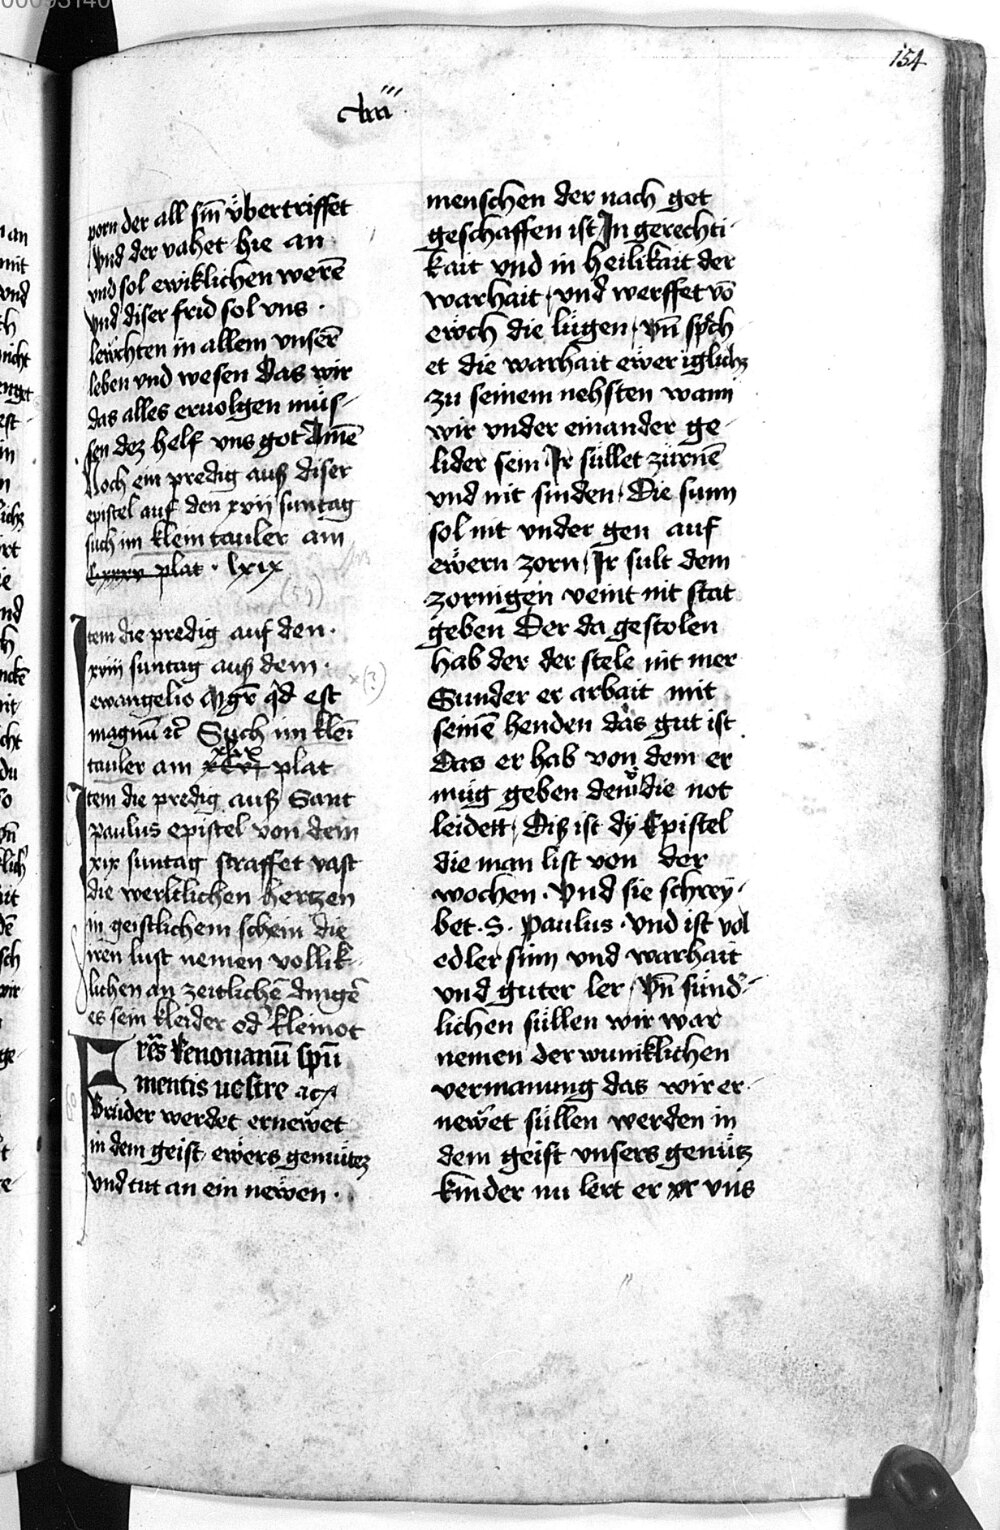 154
porn der all sin̄ v̈bertriffet
vnd der vahet hie an
vnd sol ewiklichen werē
vnd diser frid sol vns ·
lewchten in allem vnserē
leben vnd wesen das wir
das alles eruolgen müs-
sen dez helf vns got Amē
Noch ein predig auß diser
epistel auf den xvij suntag
such im klein tauler am
plat · lxix
Item die predig auf den ·
xviij suntag auß dem ·
ewangelio Mgr̄ qd est
magnū rc̄ Such im kleī
tauler am xlix plat
Item die predig auß Sant
paulus epistel von dem
xix suntag straffet vast
die werltlichen hertzen
in geistlichem schein die
iren lust nemen vollik-
lichen an zeitlichē dingē
es sein kleider od' kleinot
Frēs Renouamī spū
mentis uestre ac
Brüder werdet ernewet
in dem geist ewers gemütez
vnd tut an ein newen ·
menschen der nach get
geschaffen ist In gerechti-
kait vnd in heilikait der
warhait vnd werffet vō
ewch die lügen vn̄ sp̄ch
et die warhait ewer iglichz
zu seinem nehsten wann
wir vnder einander ge-
lider sein Ir süllet zürnē
vnd nit sinden Die sunn
sol nit vnder gen auf
ewern zorn Ir sult dem
zornigen veint nit stat
geben Der da gestolen
hab der der stele nit mer
Sunder er arbait mit
seinē henden das gut ist
Das er hab von dem er
müg geben dem der die not
leidett Diß ist dy Epistel
die man list von der
wochen · Vnd sie schrey-
bet · S · Paulus · vnd ist vol
edler sinn vnd warhait
vnd guter ler vn̄ sünd'-
lichen süllen wir war
nemen der wuniklichen
vermanung das wir er-
newet süllen werden in
dem geist vnsers gemütz
kinder nu lert er vns